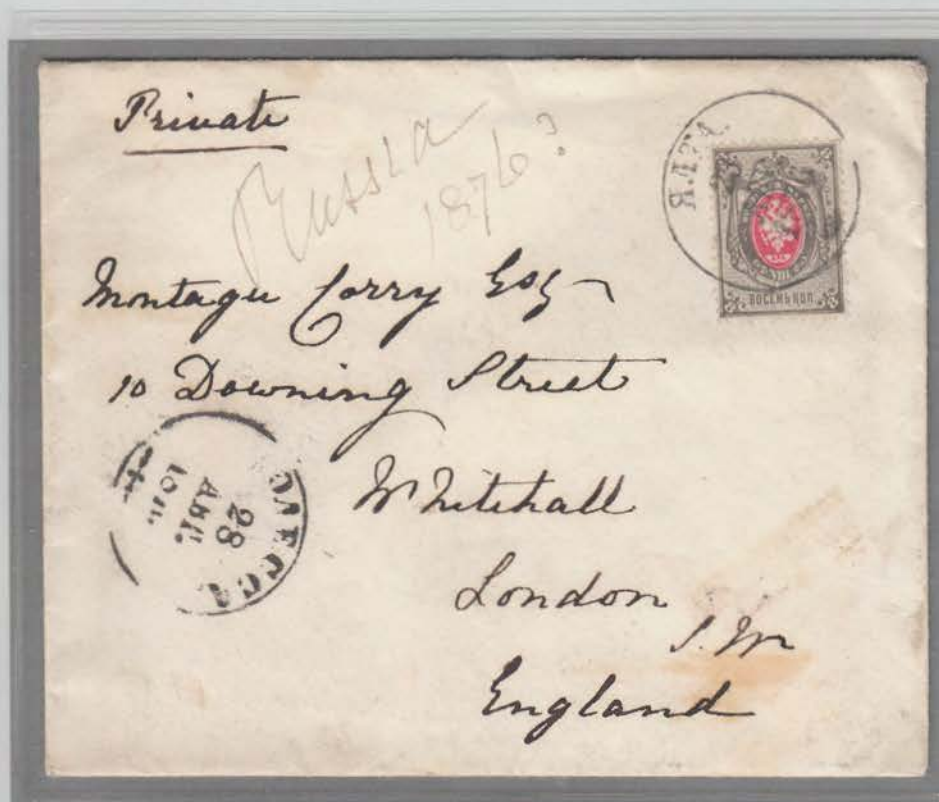 Private
Russia
1876?
ЯЛТА.
ВОСЕМЬ КОП.
Montagu Corry Esq
10 Downing Street
Whitehall
London
S.W
England
ОДЕССА
28
АВГ.